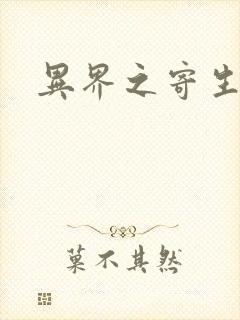 異界之寄生
菓不其然